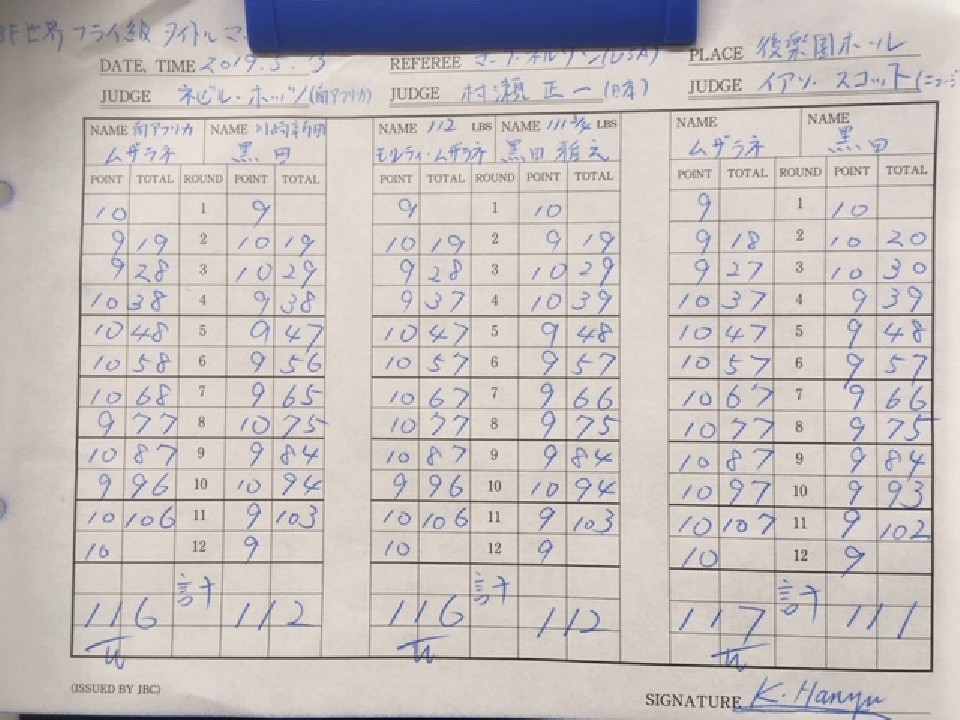 BF世界 フライ級 タイトルマ
DATE, TIME 2019.5.13 REFEREE PLACE 後楽園ホール
JUDGE ネビル・ホッツ(南アフリカ) JUDGE 村瀬 正一(日本) JUDGE イアン スコット(ニュージ
NAME 南アフリカ NAME 川崎新田 NAME 112 LBS NAME 111 3/4 LBS NAME NAME
ムザラネ 黒田 モルティ・ムザラネ 黒田 雅之 ムザラネ 黒田
POINT TOTAL ROUND POINT TOTAL POINT TOTAL ROUND POINT TOTAL POINT TOTAL ROUND POINT TOTAL
10 1 9 9 1 10 9 1 10
9 19 2 10 19 10 19 2 9 19 9 18 2 10 20
9 28 3 10 29 9 28 3 10 29 9 27 3 10 30
10 38 4 9 38 9 37 4 10 39 10 37 4 9 39
10 48 5 9 47 10 47 5 9 48 10 47 5 9 48
10 58 6 9 56 10 57 6 9 57 10 57 6 9 57
10 68 7 9 65 10 67 7 9 66 10 67 7 9 66
9 77 8 10 75 10 77 8 9 75 10 77 8 9 75
10 87 9 9 84 10 87 9 9 84 10 87 9 9 84
9 96 10 10 94 9 96 10 10 94 10 97 10 9 93
10 106 11 9 103 10 106 11 9 103 10 107 11 9 102
10 12 9 10 12 9 10 12 9
116 計 112 116 計 112 117 計 111
(ISSUED BY JBC) SIGNATURE K. Hanyu